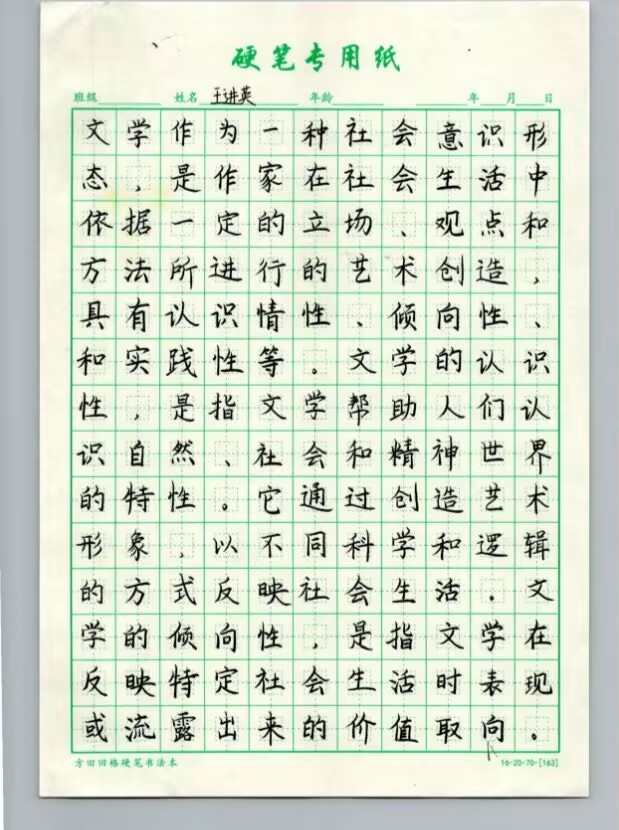 硬笔专用纸
班级 姓名 王进英 年龄 年 月 日
文学作为一种社会意识形
态，是作家在社会生活中
依据一定的立场、观点和
方法所进行的艺术创造，
具有认识情性、倾向性、
和实践性等。文学的认识
性，是指文学帮助人们认
识自然、社会和精神世界
的特性。它通过创造艺术
形象，以不同科学和逻辑
的方式反映社会生活。文
学的倾向性，是指文学在
反映特定社会生活时表现
或流露出来的价值取向。
方田回格硬笔书法本 16-20-70-[163]